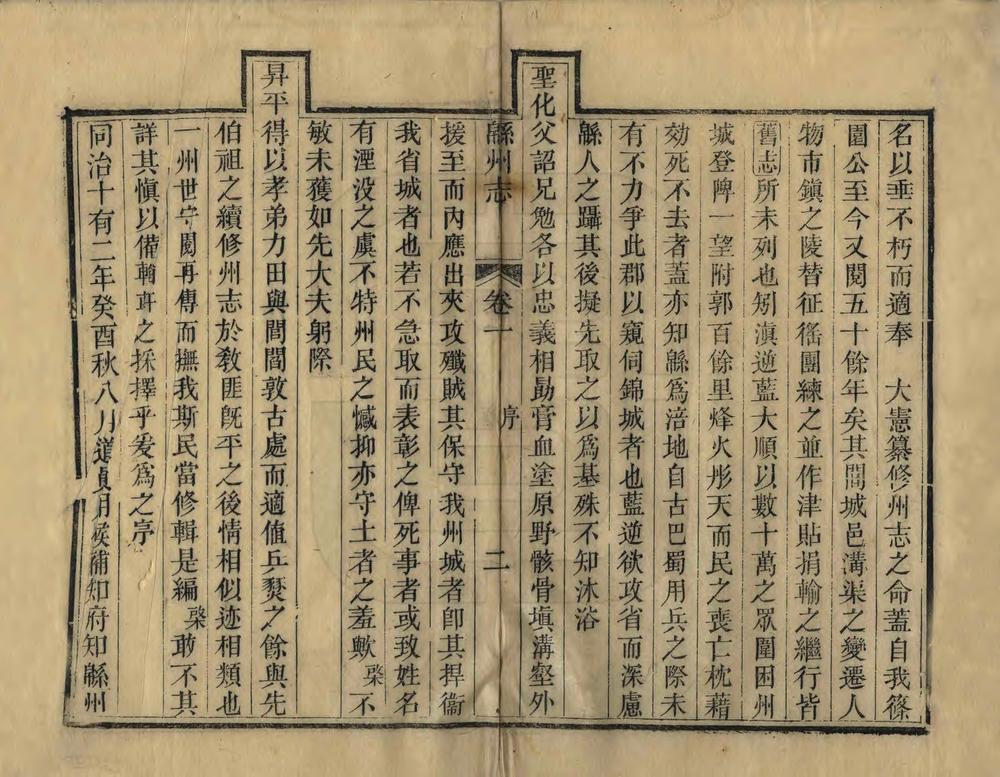 名以垂不朽而適奉　大憲纂修州志之命蓋自我篠
園公至今又閱五十餘年矣其間城邑溝渠之變遷人
物市鎮之陵替征徭團練之並作津貼捐輸之繼行皆
舊志所未列也矧滇逆藍大順以數十萬之眾圍困州
城登陴一望附郭百餘里烽火彤天而民之喪亡枕藉
効死不去者蓋亦知緜爲涪地自古巴蜀用兵之際未
有不力爭此郡以窺伺錦城者也藍逆欲攻省而深慮
緜人之躡其後擬先取之以爲基殊不知沐浴
聖化父詔兄勉各以忠義相勖膏血塗原野骸骨塡溝壑外
緜州志　卷一　序　二
援至而內應出夾攻殲賊其保守我州城者卽其捍衞
我省城者也若不急取而表彰之俾死事者或致姓名
有湮没之虞不特州民之憾抑亦守土者之羞歟棨不
敏未獲如先大夫躬際
昇平得以孝弟力田與閭閻敦古處而適値兵燹之餘與先
伯祖之續修州志於敎匪旣平之後情相似迹相類也
一州世守閱再傳而撫我斯民當修輯是編棨敢不其
詳其愼以備輶軒之採擇乎爰爲之序
同治十有二年癸酉秋八月道員用候補知府知緜州